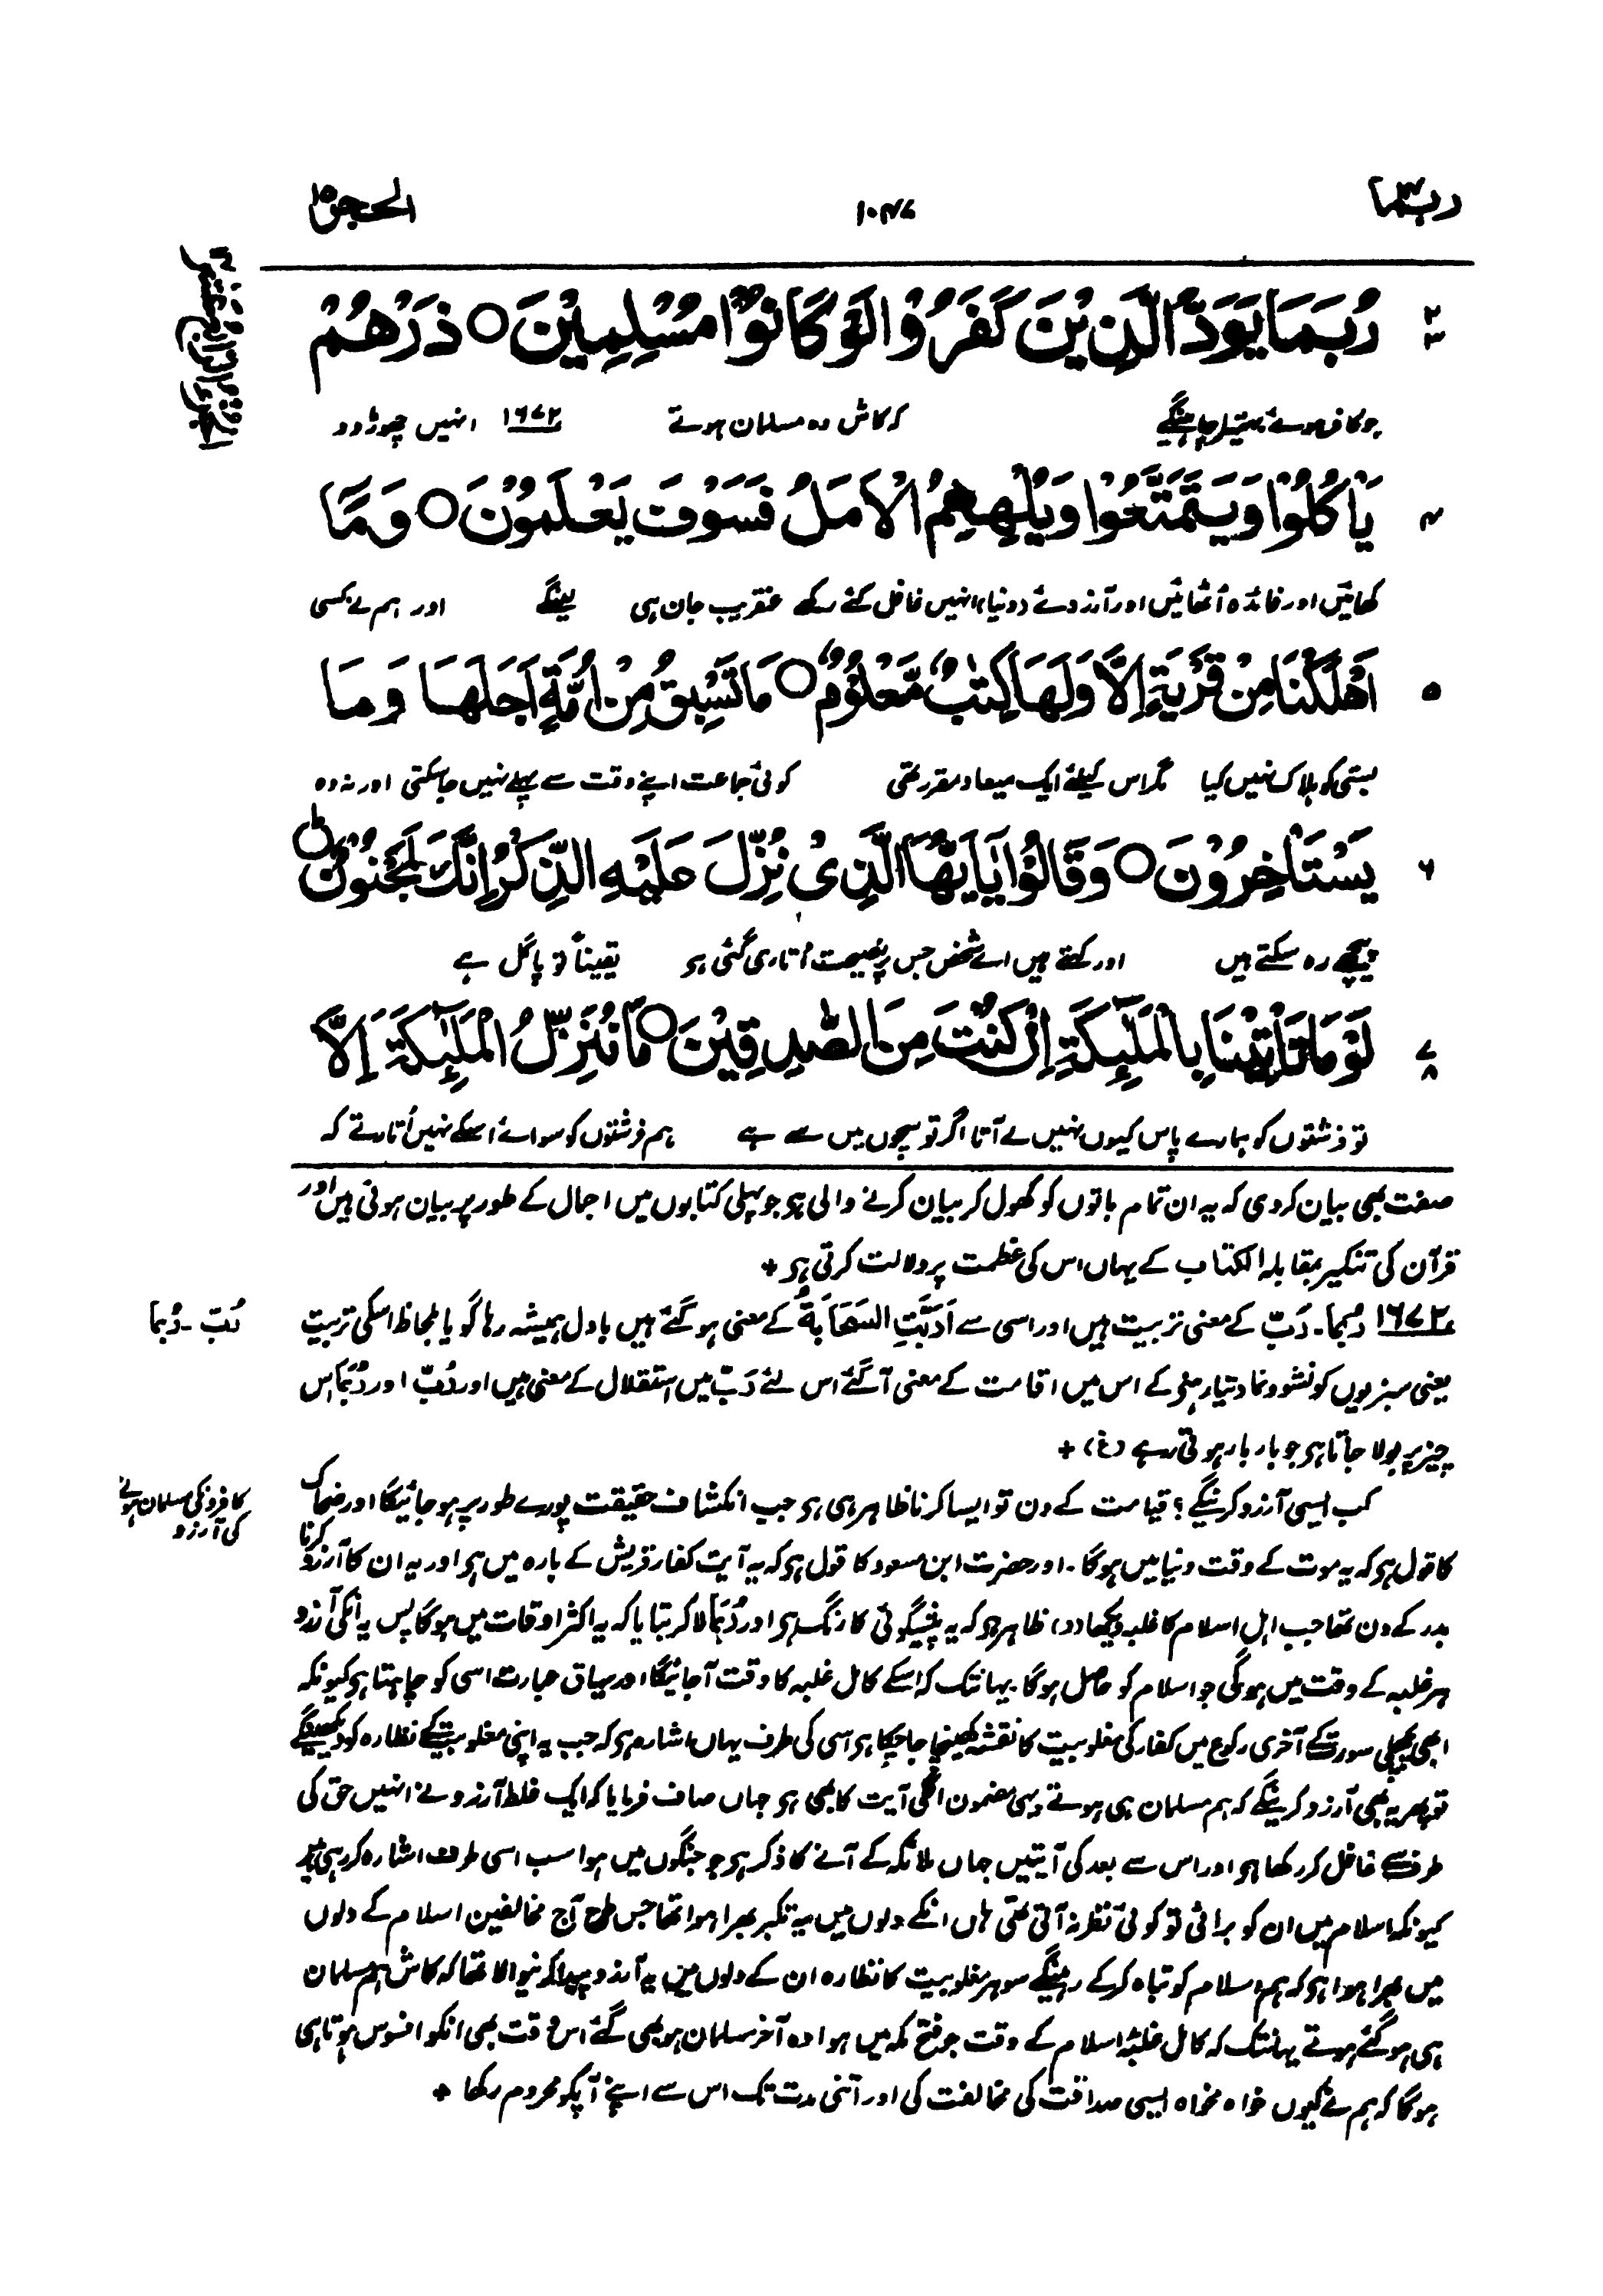 ربما ١٤
١٠٤٧
الحجر ١٥
الجزء الرابع عشر
٢
٣
رُبَمَا يَوَدُّ الَّذِيْنَ كَفَرُوْا لَوْ كَانُوْا مُسْلِمِيْنَ ○ ذَرْهُمْ
جو کافر ہوئے بہتیرا چاہینگے کہ کاش وہ مسلمان ہوتے ١٦٧٢ انہیں چھوڑ دو
٤
يَأْكُلُوْا وَيَتَمَتَّعُوْا وَيُلْهِهِمُ الْاَمَلُ فَسَوْفَ يَعْلَمُوْنَ ○ وَمَآ
کھائیں اور فائدہ اُٹھائیں اور آرزوئے دنیا انہیں غافل کئے رکھے عنقریب جان ہی لینگے اور ہم نے کسی
٥
اَهْلَكْنَا مِنْ قَرْيَةٍ اِلَّا وَلَهَا كِتٰبٌ مَّعْلُوْمٌ ○ مَا تَسْبِقُ مِنْ اُمَّةٍ اَجَلَهَا وَمَا
بستی کو ہلاک نہیں کیا مگر اس کیلئے ایک میعاد مقرر تھی کوئی جماعت اپنے وقت سے پہلے نہیں جاسکتی اور نہ وہ
٦
يَسْتَاْخِرُوْنَ ○ وَقَالُوْا يٰۤاَيُّهَا الَّذِيْ نُزِّلَ عَلَيْهِ الذِّكْرُ اِنَّكَ لَمَجْنُوْنٌ ط
پیچھے رہ سکتے ہیں اور کہتے ہیں اے شخص جس پر نصیحت اُتاری گئی ہو یقیناً تو پاگل ہے
٧
٨
لَوْ مَا تَاْتِيْنَا بِالْمَلٰٓئِكَةِ اِنْ كُنْتَ مِنَ الصّٰدِقِيْنَ ○ مَا نُنَزِّلُ الْمَلٰٓئِكَةَ اِلَّا
تو فرشتوں کو ہمارے پاس کیوں نہیں لے آتا اگر تو سچوں میں سے ہے ہم فرشتوں کو سوائے اسکے نہیں اُتارتے کہ
صفت بھی بیان کردی کہ یہ ان تمام باتوں کو کھول کر بیان کرنے والی ہو جو پہلی کتابوں میں اجمال کے طور پر بیان ہوئی ہیں اور
قرآن کی تنکیر بمقابلہ الکتاب کے یہاں اس کی عظمت پر دلالت کرتی ہو +
رُبّ - رُبَما
١٦٧٢ رُبَما۔ رَبّ کے معنی تربیت ہیں اور اسی سے اَرَبَّتِ السَّحَابَةُ کے معنی ہو گئے ہیں بادل ہمیشہ رہا گویا بلحاظ اسکی تربیت
یعنی سبزیوں کو نشوونما دینا رہنے کے اس میں اقامت کے معنی آگئے اس لئے رَبّ میں استقلال کے معنی ہیں اور رُبّ اور رُبَما اس
چیز پر بولا جاتا ہو جو بار بار ہوتی رہے (غ) +
کافروں کی مسلمان ہونے
کی آرزو
کب ایسی آرزو کرینگے؟ قیامت کے دن تو ایسا کرنا ظاہر ہی ہو جب انکشاف حقیقت پورے طور پر ہو جائیگا اور ضحاک
کا قول ہو کہ یہ موت کے وقت دنیا میں ہوگا۔ اور حضرت ابن مسعود کا قول ہو کہ یہ آیت کفار قریش کے بارہ میں ہو اور یہ ان کا آرزو کرنا
بدر کے دن تھا جب اہل اسلام کا غلبہ دیکھا (د) ظاہر ہو کہ یہ پیشگوئی کا رنگ ہو اور رُبَما لاکر بتایا کہ یہ اکثر اوقات میں ہوگا پس یہ انکی آرزو
ہر غلبہ کے وقت میں ہوگی جو اسلام کو حاصل ہوگا۔ یہانتک کہ اسکے کامل غلبہ کا وقت آجائیگا اور سیاق عبارت اسی کو چاہتا ہو کیونکہ
ابھی پچھلی سورت کے آخری رکوع میں کفار کی مغلوبیت کا نقشہ کھینچا جا چکا ہو اسی کی طرف یہاں اشارہ ہو کہ جب یہ اپنی مغلوبیت کے نظارہ کو دیکھینگے
تو پھر یہ بھی آرزو کرینگے کہ ہم مسلمان ہی ہوتے وہی مضمون اگلی آیت کا بھی ہو جہاں صاف فرمایا کہ ایک غلط آرزو نے انہیں حق کی
طرف سے غافل کر رکھا ہو اور اس سے بعد کی آیتیں جہاں ملائکہ کے آنے کا ذکر ہو جو جنگوں میں ہوا سب اسی طرف اشارہ کر رہی ہیں
کیونکہ اسلام میں ان کو برائی تو کوئی نظر نہ آتی تھی ہاں انکے دلوں میں یہ تکبر بھرا ہوا تھا جس طرح آج مخالفین اسلام کے دلوں
میں بھرا ہوا ہو کہ ہم اسلام کو تباہ کرکے رہینگے سو ہر مغلوبیت کا نظارہ ان کے دلوں میں یہ آرزو پیدا کرنیوالا تھا کہ کاش ہم مسلمان
ہی ہو گئے ہوتے یہانتک کہ کامل غلبۂ اسلام کے وقت جو فتح مکہ میں ہوا وہ آخر مسلمان ہو بھی گئے اس وقت بھی انکو افسوس ہوتا ہی
ہوگا کہ ہم نے کیوں خواہ مخواہ ایسی صداقت کی مخالفت کی اور اتنی مدت تک اس سے اپنے آپکو محروم رکھا +